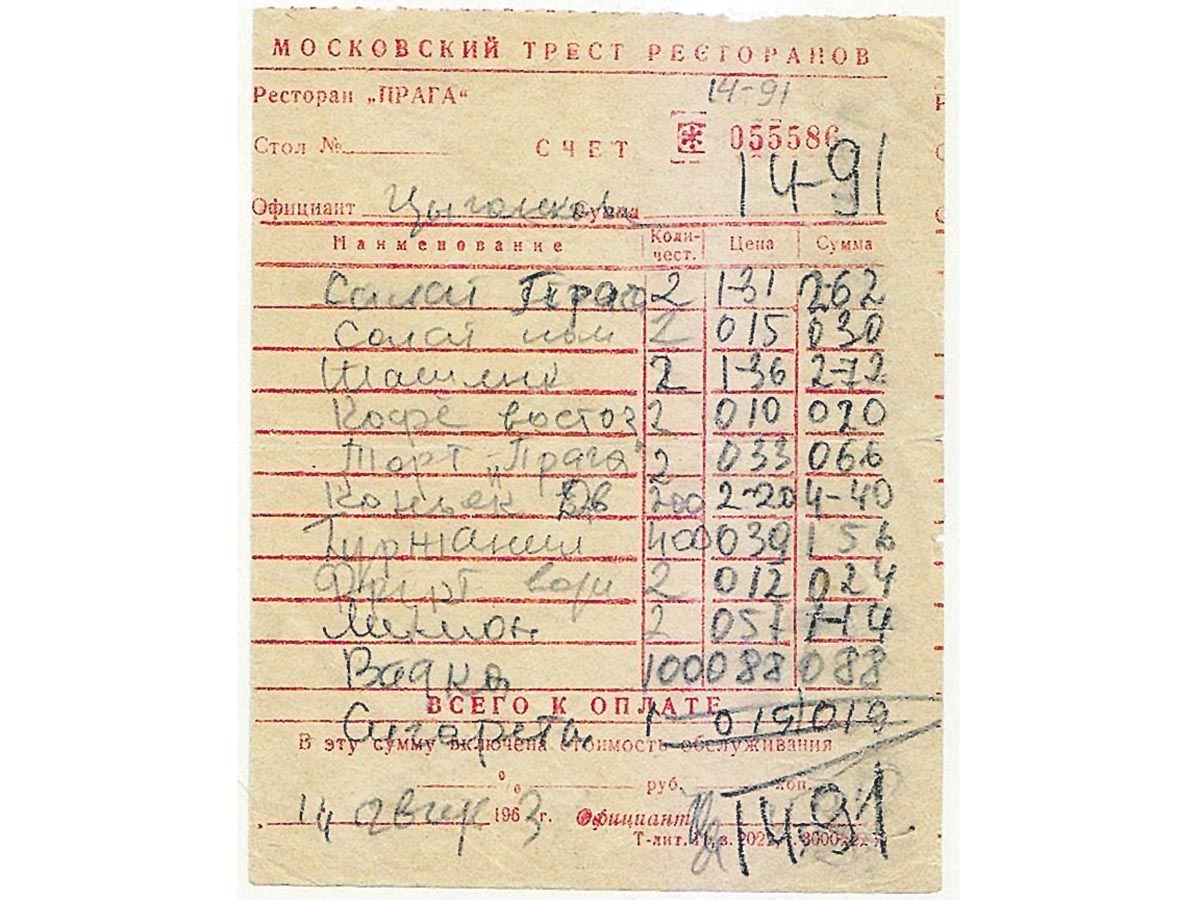 МОСКОВСКИЙ ТРЕСТ РЕСТОРАНОВ
Ресторан „ПРАГА“ 14-91
Стол № СЧЕТ 055586
Официант Сумма 14-91
Наименование Коли-чест. Цена Сумма
Салат Праг 2 1-31 2-62
Салат пом 2 015 030
Шашлык 2 1-36 2-72
Кофе восточ 2 010 020
Торт „Прага" 2 033 066
Коньяк 200 2-20 4-40
Гуржаани 400 039 156
Фрукт воды 2 012 024
Лимон 2 057 1-14
Водка 100 088 088
ВСЕГО К ОПЛАТЕ
Сигареты 1 019 019
В эту сумму включена стоимость обслуживания
% руб. коп.
14 авг 1963 г. Официант 14-91
Т-лит.